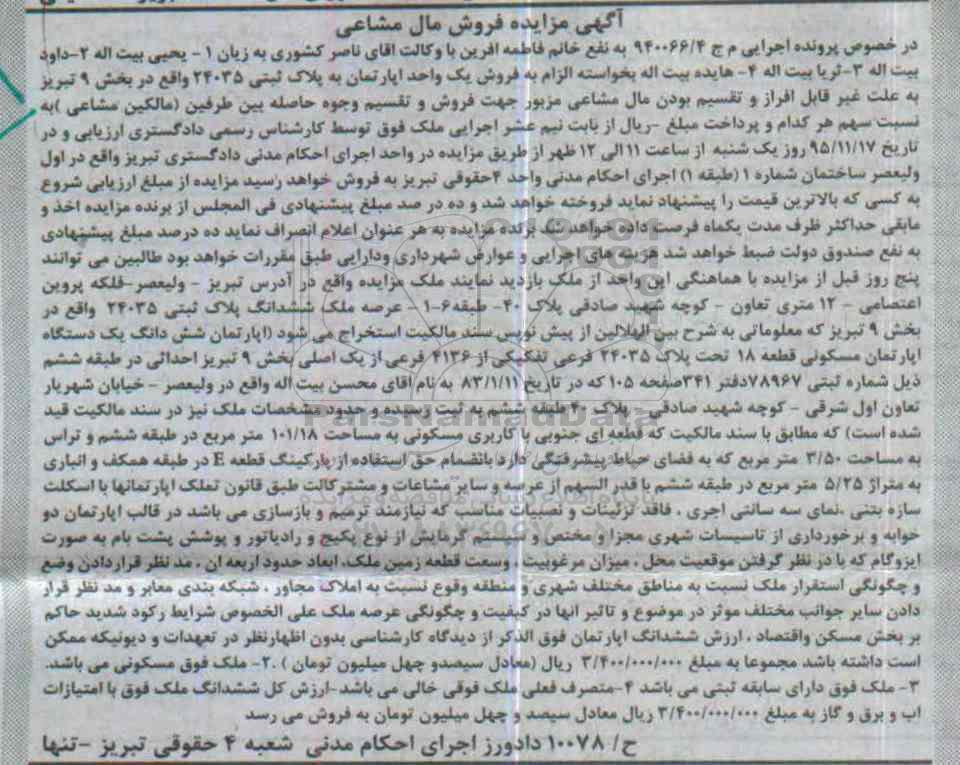 آگهی مزایده فروش مال مشاعی
در خصوص پرونده اجرایی م ج ۹۴۰۰۶۶/۴ به نفع خانم فاطمه افرین با وکالت اقای ناصر کشوری به زیان ۱- یحیی بیت اله ۲-داود
بیت اله ۳-ثریا بیت اله ۴- هایده بیت اله بخواسته الزام به فروش یک واحد اپارتمان به پلاک ثبتی ۲۴۰۳۵ واقع در بخش ۹ تبریز
به علت غیر قابل افراز و تقسیم بودن مال مشاعی مزبور جهت فروش و تقسیم وجوه حاصله بین طرفین (مالکین مشاعی )به
نسبت سهم هر کدام و پرداخت مبلغ -ریال از بابت نیم عشر اجرایی ملک فوق توسط کارشناس رسمی دادگستری ارزیابی و در
تاریخ ۹۵/۱۱/۱۷ روز یک شنبه از ساعت ۱۱ الی ۱۲ ظهر از طریق مزایده در واحد اجرای احکام مدنی دادگستری تبریز واقع در اول
ولیعصر ساختمان شماره ۱ (طبقه ۱) اجرای احکام مدنی واحد ۴حقوقی تبریز به فروش خواهد رسید مزایده از مبلغ ارزیابی شروع
به کسی که بالاترین قیمت را پیشنهاد نماید فروخته خواهد شد و ده در صد مبلغ پیشنهادی فی المجلس از برنده مزایده اخذ و
مابقی حداکثر ظرف مدت یکماه فرصت داده خواهد شد برنده مزایده به هر عنوان اعلام انصراف نماید ده درصد مبلغ پیشنهادی
به نفع صندوق دولت ضبط خواهد شد هزینه های اجرایی و عوارض شهرداری ودارایی طبق مقررات خواهد بود طالبین می توانند
پنج روز قبل از مزایده با هماهنگی این واحد از ملک بازدید نمایند ملک مزایده واقع در آدرس تبریز - ولیعصر-فلکه پروین
اعتصامی - ۱۲ متری تعاون - کوچه شهید صادقی پلاک ۴۰- طبقه۶-۱- عرصه ملک ششدانگ پلاک ثبتی ۲۴۰۳۵ واقع در
بخش ۹ تبریز که معلوماتی به شرح بین الهلالین از پیش نویس سند مالکیت استخراج می شود (اپارتمان شش دانگ یک دستگاه
اپارتمان مسکونی قطعه ۱۸ تحت پلاک ۲۴۰۳۵ فرعی تفکیکی از ۴۱۳۶ فرعی از یک اصلی بخش ۹ تبریز احداثی در طبقه ششم
ذیل شماره ثبتی ۷۸۹۶۷دفتر ۳۴۱صفحه ۱۰۵ که در تاریخ ۸۳/۱/۱۱ به نام اقای محسن بیت اله واقع در ولیعصر - خیابان شهریار
تعاون اول شرقی - کوچه شهید صادقی - پلاک ۴۰ طبقه ششم به ثبت رسیده و حدود مشخصات ملک نیز در سند مالکیت قید
شده است) که مطابق با سند مالکیت که قطعه ای جنوبی با کاربری مسکونی به مساحت ۱۰۱/۱۸ متر مربع در طبقه ششم و تراس
به مساحت ۳/۵۰ متر مربع که به فضای حیاط پیشرفتگی دارد بانضمام حق استفاده از پارکینگ قطعه E در طبقه همکف و انباری
به متراژ ۵/۲۵ متر مربع در طبقه ششم با قدر السهم از عرصه و سایر مشاعات و مشترکالت طبق قانون تملک اپارتمانها با اسکلت
سازه بتنی ،نمای سه سانتی اجری ، فاقد تزئینات و نصبیات مناسب که نیازمند ترمیم و بازسازی می باشد در قالب اپارتمان دو
خوابه و برخورداری از تاسیسات شهری مجزا و مختص و سیستم گرمایش از نوع پکیج و رادیاتور و پوشش پشت بام به صورت
ایزوگام که با در نظر گرفتن موقعیت محل ، میزان مرغوبیت ، وسعت قطعه زمین ملک، ابعاد حدود اربعه ان ، مد نظر قراردادن وضع
و چگونگی استقرار ملک نسبت به مناطق مختلف شهری و منطقه وقوع نسبت به املاک مجاور ، شبکه بندی معابر و مد نظر قرار
دادن سایر جوانب مختلف موثر در موضوع و تاثیر انها در کیفیت و چگونگی عرصه ملک علی الخصوص شرایط رکود شدید حاکم
بر بخش مسکن واقتصاد ، ارزش ششدانگ اپارتمان فوق الذکر از دیدگاه کارشناسی بدون اظهارنظر در تعهدات و دیونیکه ممکن
است داشته باشد مجموعا به مبلغ ۳/۴۰۰/۰۰۰/۰۰۰ ریال (معادل سیصدو چهل میلیون تومان ) .۲- ملک فوق مسکونی می باشد.
۳- ملک فوق دارای سابقه ثبتی می باشد ۴-متصرف فعلی ملک فوقی خالی می باشد-ارزش کل ششدانگ ملک فوق با امتیازات
اب و برق و گاز به مبلغ ۳/۴۰۰/۰۰۰/۰۰۰ ریال معادل سیصد و چهل میلیون تومان به فروش می رسد
ح/ ۱۰۰۷۸ دادورز اجرای احکام مدنی شعبه ۴ حقوقی تبریز -تنها
ParsNamadData